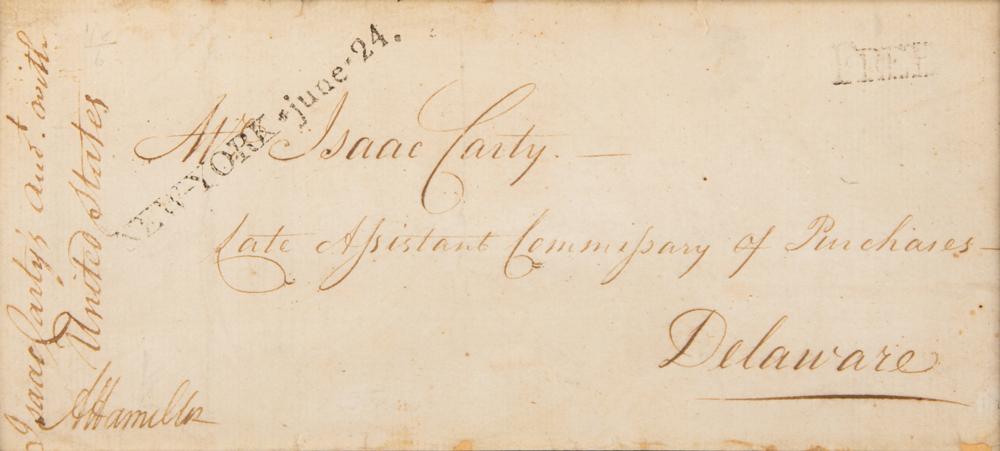 NEW-YORK·june-24.
FREE
Mr. Isaac Carty. —
Late Assistant Commissary of Purchases —
Delaware
AHamilton
Isaac Carty's Aud.t with
United States